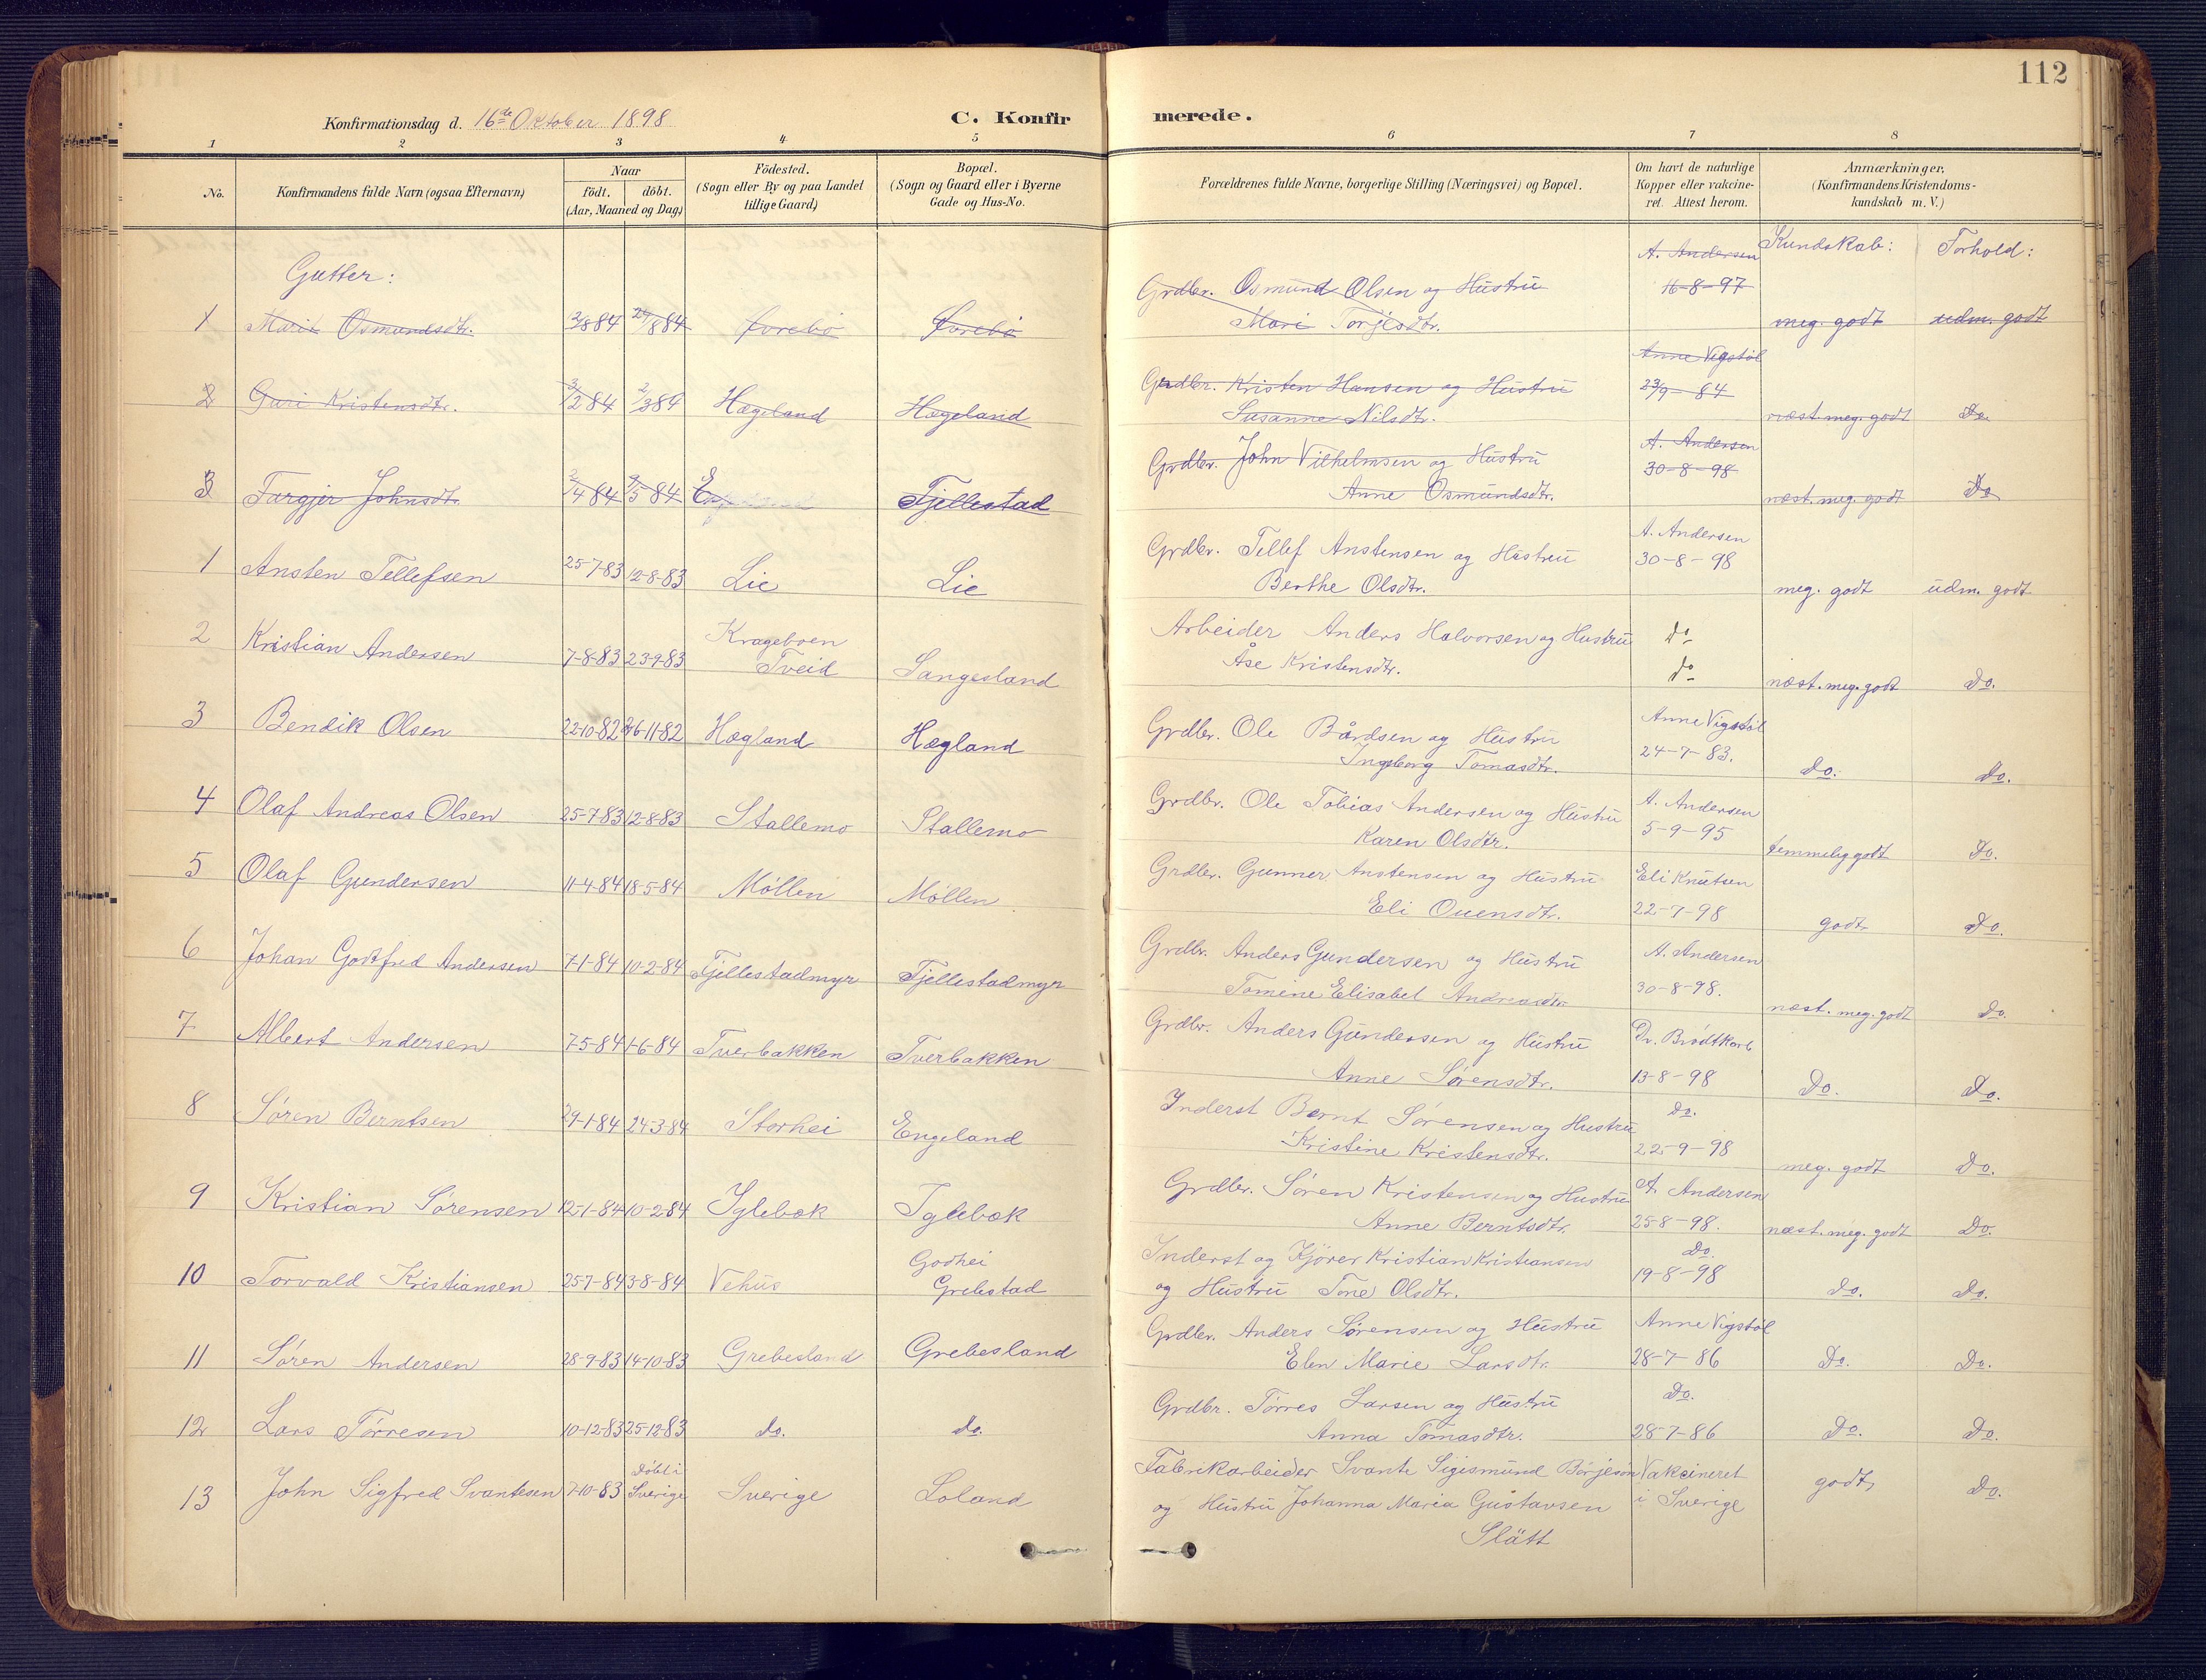 112
Konfirmationsdag d. 16de Oktober 1898
C. Konfirmerede.
1 2 3 4 5 6 7 8
No.
Konfirmandens fulde Navn (ogsaa Efternavn)
Naar
födt. döbt.
(Aar, Maaned og Dag)
Födested.
(Sogn eller By og paa Landet
tillige Gaard)
Bopæl.
(Sogn og Gaard eller i Byerne
Gade og Hus-No.
Forældrenes fulde Navne, borgerlige Stilling (Næringsvei) og Bopæl.
Om havt de naturlige
Kopper eller vakcine-
ret. Attest herom.
Anmærkninger.
(Konfirmandens Kristendoms-
kundskab m. V.)
Kundskab: Forhold:
Gutter:
1 Mari Osmundsdtr. 2/8 84 24/8 84 Førebø Førebø Grdbr. Osmund Olsen og Hustru A. Andersen
Mari Torjesdtr. 16-8-97 meg. godt udm. godt
2 Guri Kristensdtr. 3/2 84 2/3 84 Hægeland Hægeland Grdbr. Kristen Hansen og Hustru Anne Vigstøl
Susanne Nilsdtr. 23/9-84 næst meg. godt Do.
3 Targjer Johnsdtr. 2/4 84 /5 84 Fjellestad Grdbr. John Vilhelmsen og Hustru A. Andersen
Anne Osmundsdtr. 30-8-98 næst. meg. godt Do
1 Ansten Tellefsen 25-7-83 12-8-83 Lie Lie Grdbr. Tellef Anstensen og Hustru A. Andersen
Berthe Olsdtr. 30-8-98 meg. godt udm. godt
2 Kristian Andersen 7-8-83 23-9-83 Krageboen
Tveid Sangesland Arbeider Anders Halvorsen og Hustru do
Åse Kristensdtr. do næst. meg. godt Do.
3 Bendik Olsen 22-10-82 26-11-82 Hægland Hægland Grdbr. Ole Bårdsen og Hustru Anne Vigstøl
Ingeborg Tomasdtr. 24-7-83. do. Do.
4 Olaf Andreas Olsen 25-7-83 12-8-83 Stallemo Stallemo Grdbr. Ole Tobias Andersen og Hustru A. Andersen
Karen Olsdtr. 5-9-95 temmelig godt Do.
5 Olaf Gundersen 11-4-84 18-5-84 Møllen Møllen Grdbr. Gunner Anstensen og Hustru Eli Knutsen
Eli Ouensdtr. 22-7-98 godt Do.
6 Johan Godtfred Andersen 7-1-84 10-2-84 Fjellestadmyr Fjellestadmyr Grdbr. Anders Gundersen og Hustru A. Andersen
Tomine Elisabet Andreasdtr. 30-8-98. næst. meg. godt Do.
7 Albert Andersen 7-5-84 1-6-84 Tverbakken Tverbakken Grdbr. Anders Gundersen og Hustru Dr. Brodtkorb
Anne Sørensdtr. 13-8-98 Do. Do.
8 Søren Berntsen 29-1-84 24-3-84 Storhei Engeland Inderst Bernt Sørensen og Hustru Do.
Kristine Kristensdtr. 22-9-98 meg. godt Do.
9 Kristian Sørensen 12-1-84 10-2-84 Iglebæk Iglebæk Grdbr. Søren Kristensen og Hustru A. Andersen
Anne Berntsdtr. 25-8-98. næst. meg. godt Do.
10 Torvald Kristiansen 25-7-84 3-8-84 Vehus Godhei
Grebstad Inderst og Kjører Kristian Kristiansen Do.
og Hustru Tone Olsdtr. 19-8-98 Do. Do.
11 Søren Andersen 28-9-83 14-10-83 Grebesland Grebesland Grdbr. Anders Sørensen og Hustru Anne Vigstøl
Elen Marie Larsdtr. 28-7-86 Do. Do.
12 Lars Tørresen 10-12-83 25-12-83 do. do. Grdbr. Tørres Larsen og Hustru Do.
Anna Tomasdtr. 28-7-86 Do. Do.
13 John Sigfred Svantesen 7-10-83 Døbt i
Sverige Sverige Loland Fabrikarbeider Svante Sigismund Börjeson Vakcineret
og Hustru Johanna Maria Gustavsen i Sverige godt, Do.
Slätt